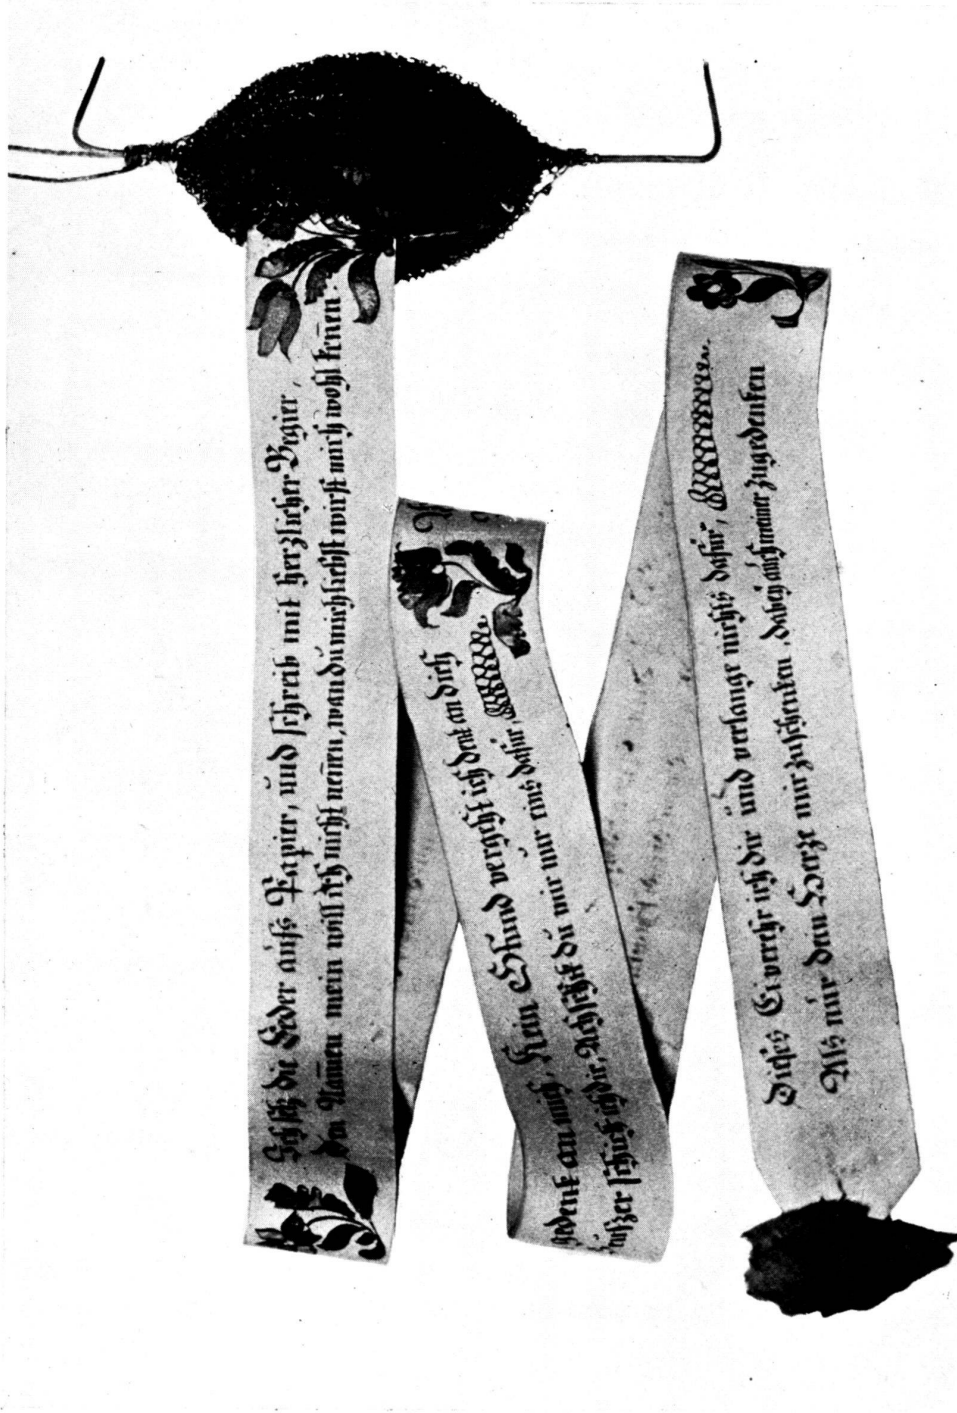 Ich setz die Feder aufs Papier, und schreib mit herzlicher Begier,
den Namen mein will ich nicht nennen, wan du mich liebst wirst mich wohl kennen.
gedenk an mich, kein Stund vergeht ich denk an dich
schick ich dir, Ach schick du mir nur eins dafür,
Dieses Ei verehr ich dir und verlange nichts dafür,
Als nur dein Herze mir zuschenken, dabey auch meiner zugedenken